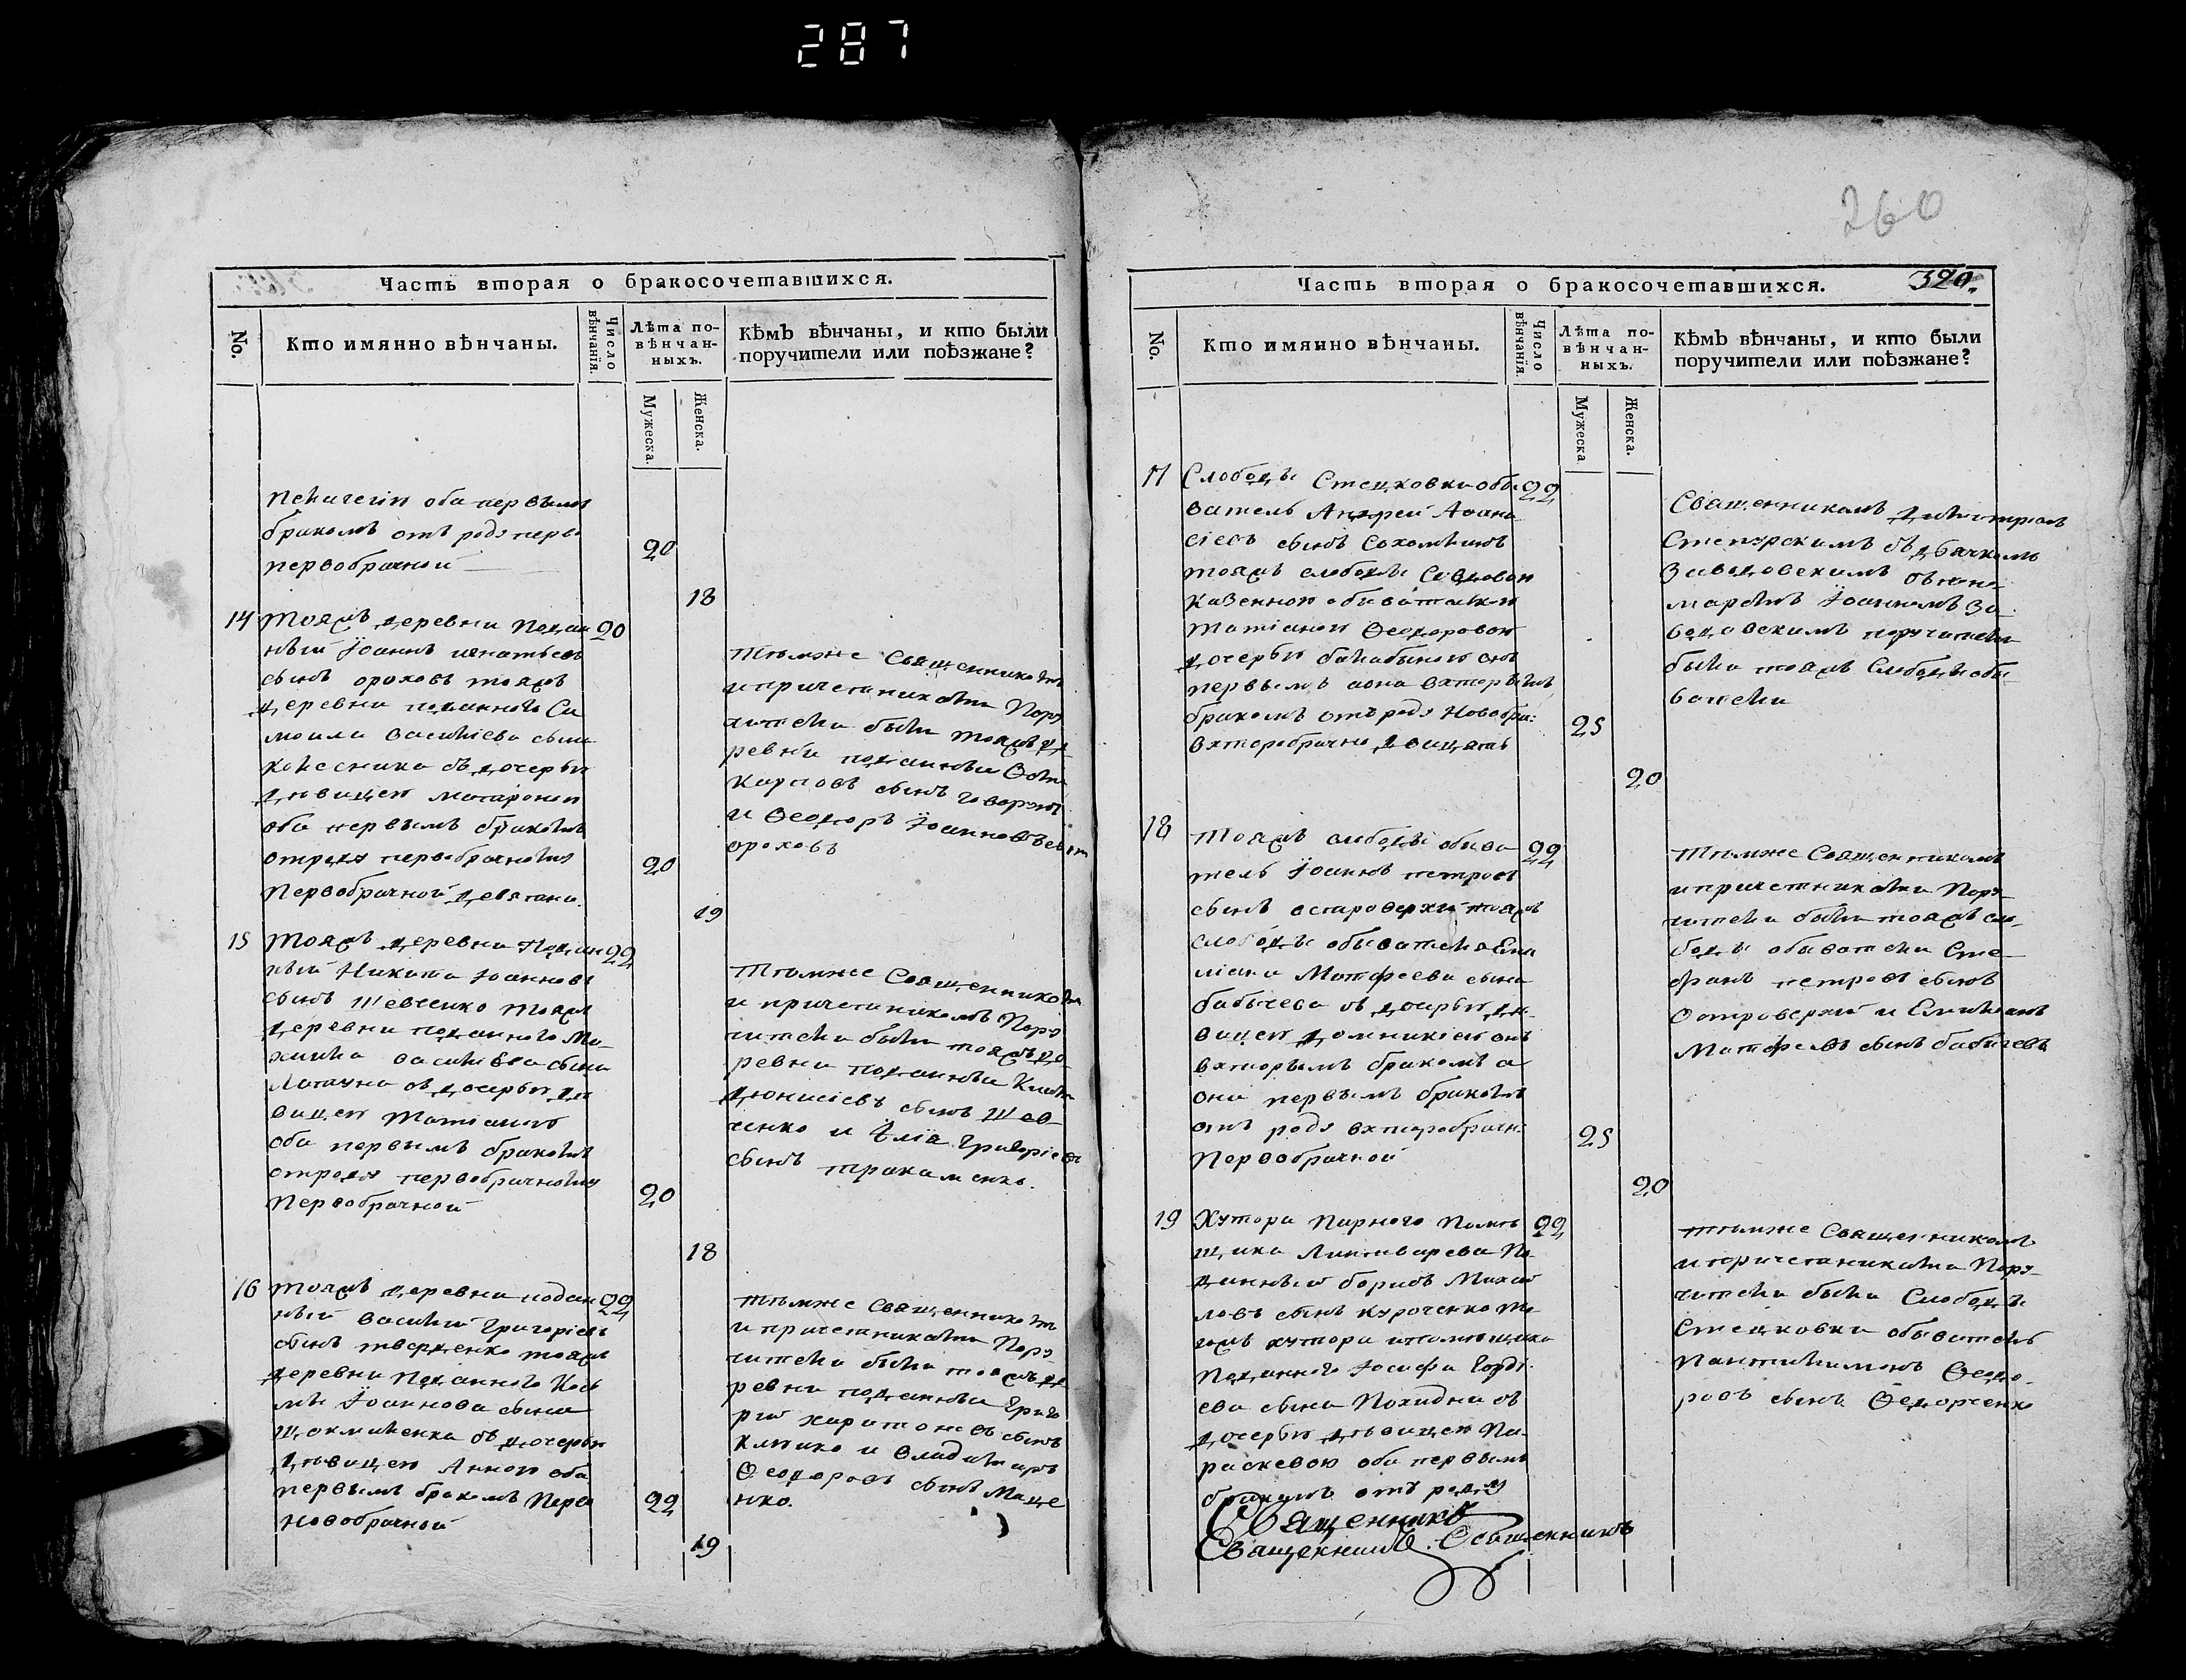 287
260
Часть вторая о бракосочетавшихся.
No.
Кто имянно вѣнчаны.
Число вѣнчанія.
Лѣта по-
вѣнчан-
ныхъ.
Мужеска.
Женска.
Кѣмъ вѣнчаны, и кто были
поручители или поѣзжане?
оба первымъ
бракомъ отъ роду перво
первобрачной
20
18
14
Тояжъ деревни Подан
20
ный Іоаннъ Игнатьевъ
сынъ Ороховъ тояжъ
деревни поданного Са
моила Василіева сына
Колесника съ дочерью
девицею Матроною
оба первымъ бракомъ
отроду первобрачному
20
Первобрачной девятна.
19
Тѣмже Священникомъ
и причетниками Пору
чители были тояжъ де
ревни поданныи
Карповъ сынъ
и Ѳеодоръ Іоанновъ сынъ
Ороховъ
15
Тояжъ деревни Подан
22
ный Никита Іоанновъ
сынъ Шевченко тояжъ
деревни поданного
Василіева сына
съ дочерью де
вицею Татіаною
оба первымъ бракомъ
отроду первобрачному
Первобрачной
20
18
Тѣмже Священникомъ
и причетникомъ Пору
чители были тояжъ де
ревни поданныи
Діонисіевъ сынъ Шев
ченко и Илія Григоріевъ
сынъ
16
Тояжъ деревни подан
22
ный Василий Григоріевъ
сынъ Твердченко тояжъ
деревни Поданного Кось
мы Іоаннова сына
съ дочерью
девицею Анною оба
первымъ бракомъ Перво
22
новобрачной
19
Тѣмже Священникомъ
и причетниками Пору
чители были тояжъ де
ревни поданныи Григо
рий Харитоновъ сынъ
и Владимиръ
Ѳеодоровъ сынъ Маце
нко.
Часть вторая о бракосочетавшихся.
320.
No.
Кто имянно вѣнчаны.
Число вѣнчанія.
Лѣта по-
вѣнчан-
ныхъ.
Мужеска
Женска.
Кѣмъ вѣнчаны, и кто были
поручители или поѣзжане?
17
Слободы Стецковки обы
22
ватель Андрей Аѳана
сіевъ сынъ
тояжъ слободы
казенной обывателкой
Татіаной Ѳеодоровой
дочерью онъ
первымъ аона вторымъ
бракомъ отъ роду новобра:
25
второбрачна двацать
20
Священникомъ Димитріемъ
Степурскимъ съ дьячкомъ
Заводовскимъ
Іоанномъ За
водовскимъ поручители
были тояжъ Слободы обы
ватели
18
Тояжъ слободы обыва
22
тель Іоаннъ Петровъ
сынъ Востроверхий тояжъ
слободы обывателя Еми
ліана Матфеева сына
Бабичева съ дочерью де
вицею Домникіею онъ
вторымъ бракомъ а
она первымъ бракомъ
отъ роду второбрачн:
25
Первобрачной
20
Тѣмже Священникомъ
и причетниками Пору
чители были тояжъ сло
боды обыватели Сте
фанъ Петровъ сынъ
Востроверхий и Емиліанъ
Матфеевъ сынъ Бабичевъ
19
Хутора Парного Помѣ
22
щика Линтварева По
данный Борисъ Михай
ловъ сынъ Куроченко то
гожъ хутора ипомѣщика
Поданного Іосифа Горді
ева сына Походна съ
дочерью девицею Па
раскевою оба первымъ
бракомъ отъ роду
Тѣмже Священникомъ
и причетниками Пору
чители были Слободы
Стецковки обыватель
Пантилимонъ Ѳеодо
ровъ сынъ Ѳедорченко
Священникъ
Священникъ. Священникъ